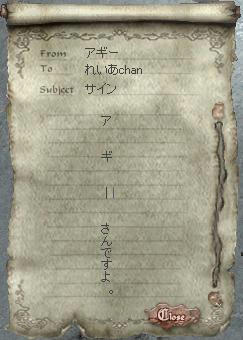 From アギー
To れいあchan
Subject サイン
ア
ギ
||
さんですよ。
Close